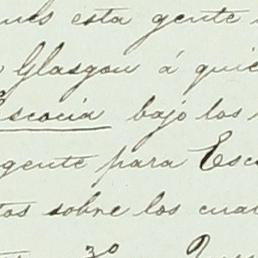 ues esta gente
Glasgow á quie
Escocia bajo los
gente para Esco
tos sobre los cual
3º